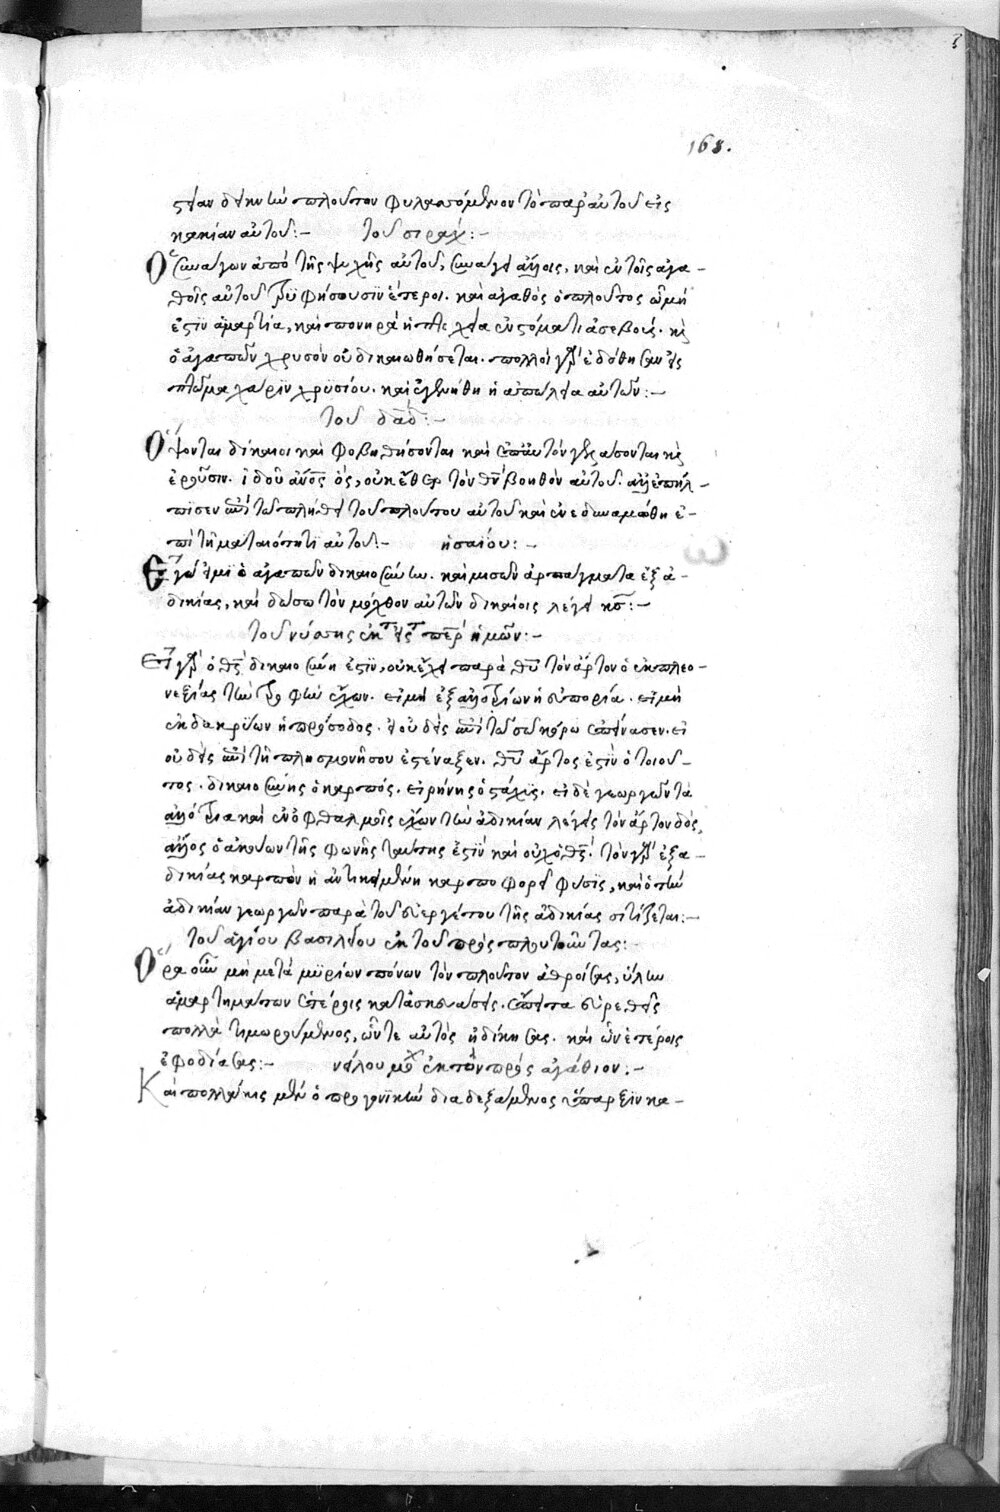 168.
στίαν δεινὴν πλοῦτον φυλασσόμενον τὸ παρ' αὐτοῦ εἰς
κακίαν αὐτοῦ:– τοῦ σιράχ:–
Ὁ συνάγων ἀπὸ τῆς ψυχῆς αὐτοῦ, συνάγει ἄλλοις, καὶ ἐν τοῖς ἀγα–
θοῖς αὐτοῦ τρυφήσουσιν ἕτεροι. καὶ ἀγαθὸς ὁ πλοῦτος ᾧ μή
ἐστιν ἁμαρτία, καὶ πονηρὰ ἡ πτωχεία ἐν στόματι ἀσεβοῦς. καὶ
ὁ ἀγαπῶν χρυσὸν οὐ δικαιωθήσεται. πολλοὶ γὰρ ἐδόθησαν εἰς
πτῶμα χάριν χρυσίου. καὶ ἐγενήθη ἡ ἀπώλεια αὐτῶν:–
τοῦ δαδ:–
Ὄψονται δίκαιοι καὶ φοβηθήσονται καὶ ἐπ' αὐτὸν γελάσονται καὶ
ἐροῦσιν. ἰδοὺ ἄνος ὃς, οὐκ ἔθετο τὸν θν βοηθὸν αὐτοῦ. ἀλλ' ἐπήλ–
πισεν ἐπὶ τῷ πλήθει τοῦ πλούτου αὐτοῦ καὶ ἐνεδυναμώθη ἐ–
πὶ τῇ ματαιότητι αὐτοῦ:– ἡσαΐου:–
Ἐγώ εἰμι ὁ ἀγαπῶν δικαιοσύνην. καὶ μισῶν ἁρπάγματα ἐξ ἀ–
δικίας, καὶ δώσω τὸν μόχθον αὐτῶν δικαίοις λέγει κς:–
τοῦ νύσης ἐκ τ εἰς τ περ ἡμῶν:–
Εἰ γὰρ ὁ θς δικαιοσύνη ἐστὶν, οὐκ ἔχει παρὰ θυ τὸν ἄρτον ὁ ἐκ πλεο–
νεξίας τὴν τροφὴν ἔχων. εἰ μὴ ἐξ ἀλλοτρίων ἡ εὐπορία. εἰ μὴ
ἐκ δακρύων ἡ πρόσοδος. εἰ οὐδεὶς ἐπὶ τῷ σῷ κόρῳ ἐπείνασεν. εἰ
οὐδεὶς ἐπὶ τῇ πλησμονῇ σου ἐστέναξεν. θυ ἄρτος ἐστὶν ὁ τοιοῦ–
τος. δικαιοσύνης ὁ καρπός. εἰρήνης ὁ στάχυς. εἰ δὲ γεωργῶν τὰ
ἀλλότρια καὶ ἐν ὀφθαλμοῖς ἔχων τὴν ἀδικίαν λέγεις τὸν ἄρτον δός,
ἄλλος ὁ ἀκούων τῆς φωνῆς ταύτης ἐστὶν καὶ οὐχ ὁ θς. τὸν γὰρ ἐξ ἀ–
δικίας καρπὸν ἡ ἀντικειμένη καρποφορεῖ φύσις, καὶ ὁ τὴν
ἀδικίαν γεωργῶν παρὰ τοῦ εὐεργέτου τῆς ἀδικίας σιτίζεται:–
τοῦ ἁγίου βασιλείου ἐκ τοῦ πρὸς πλουτοῦντας:–
Ὅρα οὖν μὴ μετὰ μυρίων πόνων τὸν πλοῦτον ἀθροίσας, ὕλην
ἁμαρτημάτων ἑτέροις κατασκευάσῃς. ἔπειτα εὑρεθῇς
πολλὰ τιμωρούμενος, ὧν τε αὐτὸς ἠδίκησας. καὶ ὧν ἑτέροις
ἐφοδιάσας:– νείλου μοχ ἐκ τῶν πρὸς ἀγάθιον:–
Καὶ πολλάκις μὲν ὁ προγονικὴν διαδεξάμενος ὕπαρξιν κα–